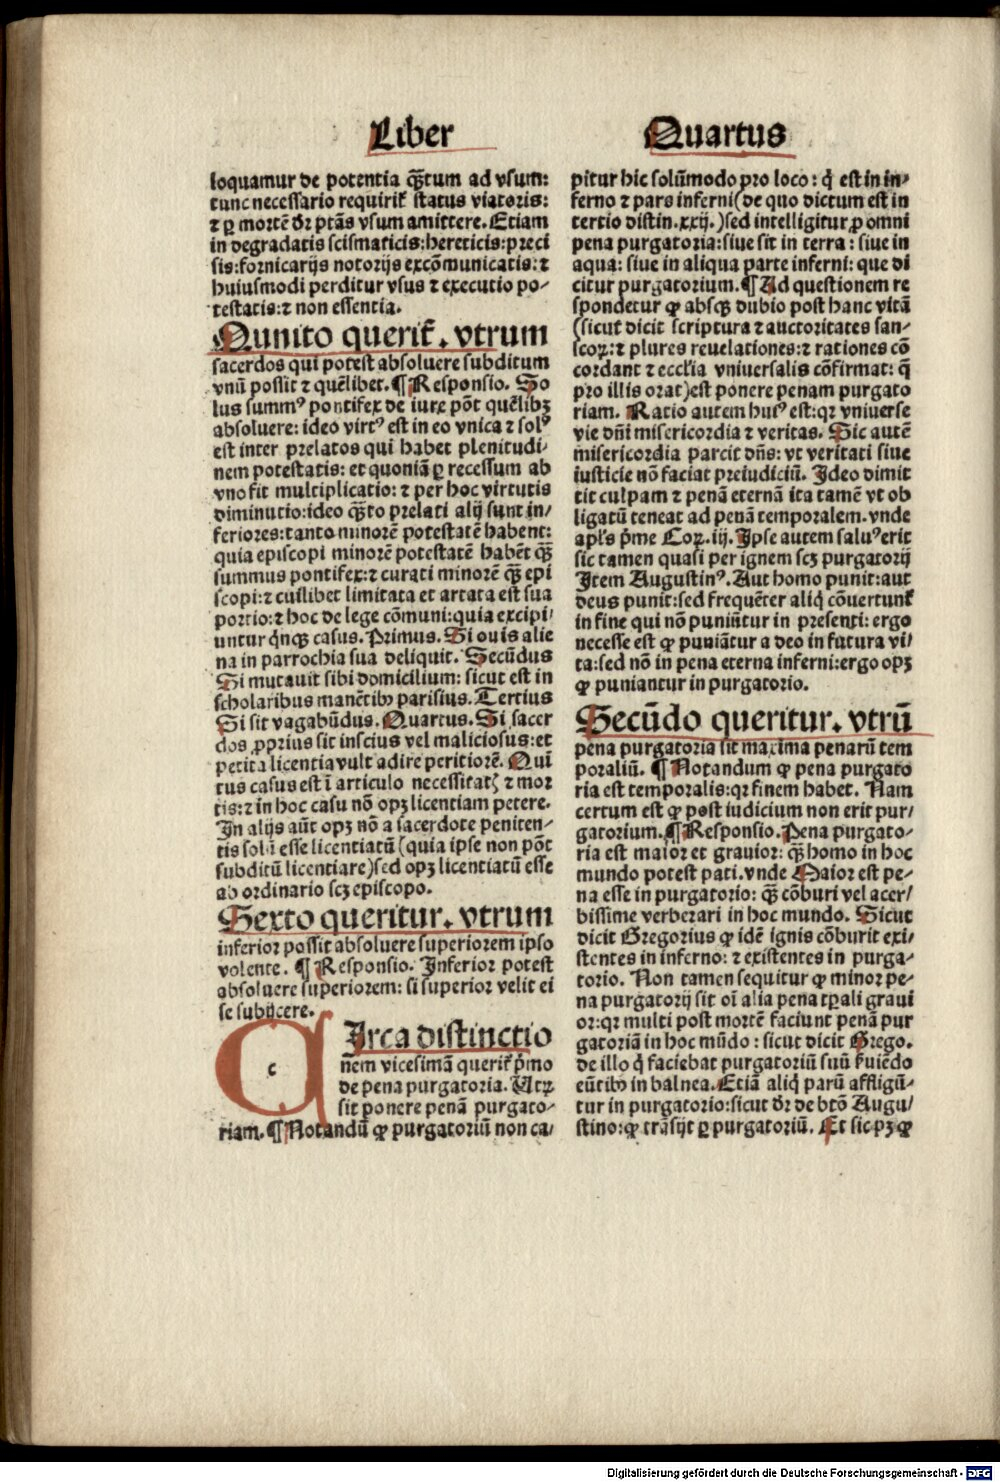 Liber
Quartus
loquamur de potentia qꝫ̄tum ad vsum:
tunc necessario requirit᷑ status viatoris:
⁊ ꝑ mortē dr̄ ptās vsum amittere. Etiam
in degradatis scismaticis: hereticis: preci
sis: fornicarijs notorijs excōmunicatis: ⁊
huiusmodi perditur vsus ⁊ executio po-
testatis: ⁊ non essentia.
Qunito querit᷑. vtrum
sacerdos qui potest absoluere subditum
vnū possit ⁊ quēlibet. ¶ Responsio. So
lus summꝰ pontifex de iure pōt quēlibꝫ
absoluere: ideo virtꝰ est in eo vnica ⁊ solꝰ
est inter prelatos qui habet plenitudi-
nem potestatis: et quoniā ꝑ recessum ab
vno fit multiplicatio: ⁊ per hoc virtutis
diminutio: ideo qꝫ̄to prelati alij sunt in-
feriores: tanto minorē potestatē habent:
quia episcopi minorē potestatē habēt qꝫ̄
summus pontifex: ⁊ curati minorē qꝫ̄ epi
scopi: ⁊ cuilibet limitata et artata est sua
portio: ⁊ hoc de lege cōmuni: quia excipi-
untur qͥnqꝫ casus. Primus. Si ouis alie
na in parrochia sua deliquit. Secūdus
Si mutauit sibi domicilium: sicut est in
scholaribus manētibꝫ parisius. Tertius
Si sit vagabūdus. Quartus. Si sacer
dos ꝓprius sit inscius vel maliciosus: et
petita licentia vult adire peritiorē. Quī
tus casus est ī articulo necessitatꝭ ⁊ mor
tis: ⁊ in hoc casu nō opꝫ licentiam petere.
In alijs aūt opꝫ nō a sacerdote peniten-
tis solū esse licentiatū (quia ipse non pōt
subditū licentiare) sed opꝫ licentiatū esse
ab ordinario scꝫ episcopo.
Sexto queritur. vtrum
inferior possit absoluere superiorem ipso
volente. ¶ Responsio. Inferior potest
absoluere superiorem: si superior velit ei
se subijcere.
c
Irca distinctio
nem vicesimā querit᷑ pͥmo
de pena purgatoria. Utꝝ
sit ponere penā purgato-
riam. ¶ Notandū ꝙ purgatoriū non ca-
pitur hic solūmodo pro loco: qͥ est in in-
ferno ⁊ pars inferni (de quo dictum est in
tertio distin. xxij.) sed intelligitur ꝓ omni
pena purgatoria: siue sit in terra: siue in
aqua: siue in aliqua parte inferni: que di
citur purgatorium. ¶ Ad questionem re
spondetur ꝙ absqꝫ dubio post hanc vitā
(sicut dicit scriptura ⁊ auctoritates san-
scoꝝ: ⁊ plures reuelationes: ⁊ rationes cō
cordant ⁊ eccl̄ia vniuersalis cōfirmat: q̄
pro illis orat) est ponere penam purgato
riam. Ratio autem huiꝰ est: qꝛ vniuerse
vie dn̄i misericordia ⁊ veritas. Sic autē
misericordia parcit dn̄s: vt veritati siue
iusticie nō faciat preiudiciū. Ideo dimit
tit culpam ⁊ penā eternā ita tamē vt ob
ligatū teneat ad penā temporalem. vnde
apl̄s pͥme Coꝝ. iij. Ipse autem saluꝰ erit
sic tamen quasi per ignem scꝫ purgatorij
Item Augustinꝰ. Aut homo punit: aut
deus punit: sed frequēter aliqͥ cōuertunt᷑
in fine qui nō puniūtur in presenti: ergo
necesse est ꝙ puniātur a deo in futura vi-
ta: sed nō in pena eterna inferni: ergo opꝫ
ꝙ puniantur in purgatorio.
Secūdo queritur. vtrū
pena purgatoria sit maxima penarū tem
poraliū. ¶ Notandum ꝙ pena purgato
ria est temporalis: qꝛ finem habet. Nam
certum est ꝙ post iudicium non erit pur-
gatorium. ¶ Responsio. Pena purgato-
ria est maior et grauior: qꝫ̄ homo in hoc
mundo potest pati. vnde Maior est pe-
na esse in purgatorio: qꝫ̄ cōburi vel acer-
bissime verberari in hoc mundo. Sicut
dicit Gregorius ꝙ idē ignis cōburit exi-
stentes in inferno: ⁊ existentes in purga-
torio. Non tamen sequitur ꝙ minor pe-
na purgatorij sit oī alia pena tꝑali graui
or: qꝛ multi post mortē faciunt penā pur
gatoriā in hoc mūdo: sicut dicit Grego.
de illo qͥ faciebat purgatoriū suū ẜuiēdo
eūtibꝫ in balnea. Etiā aliqͥ parū affligū-
tur in purgatorio: sicut dr̄ de btō Augu-
stino: ꝙ trāsijt ꝑ purgatoriū. Et sic pꝫ ꝙ
Digitalisierung gefördert durch die Deutsche Forschungsgemeinschaft - DFG